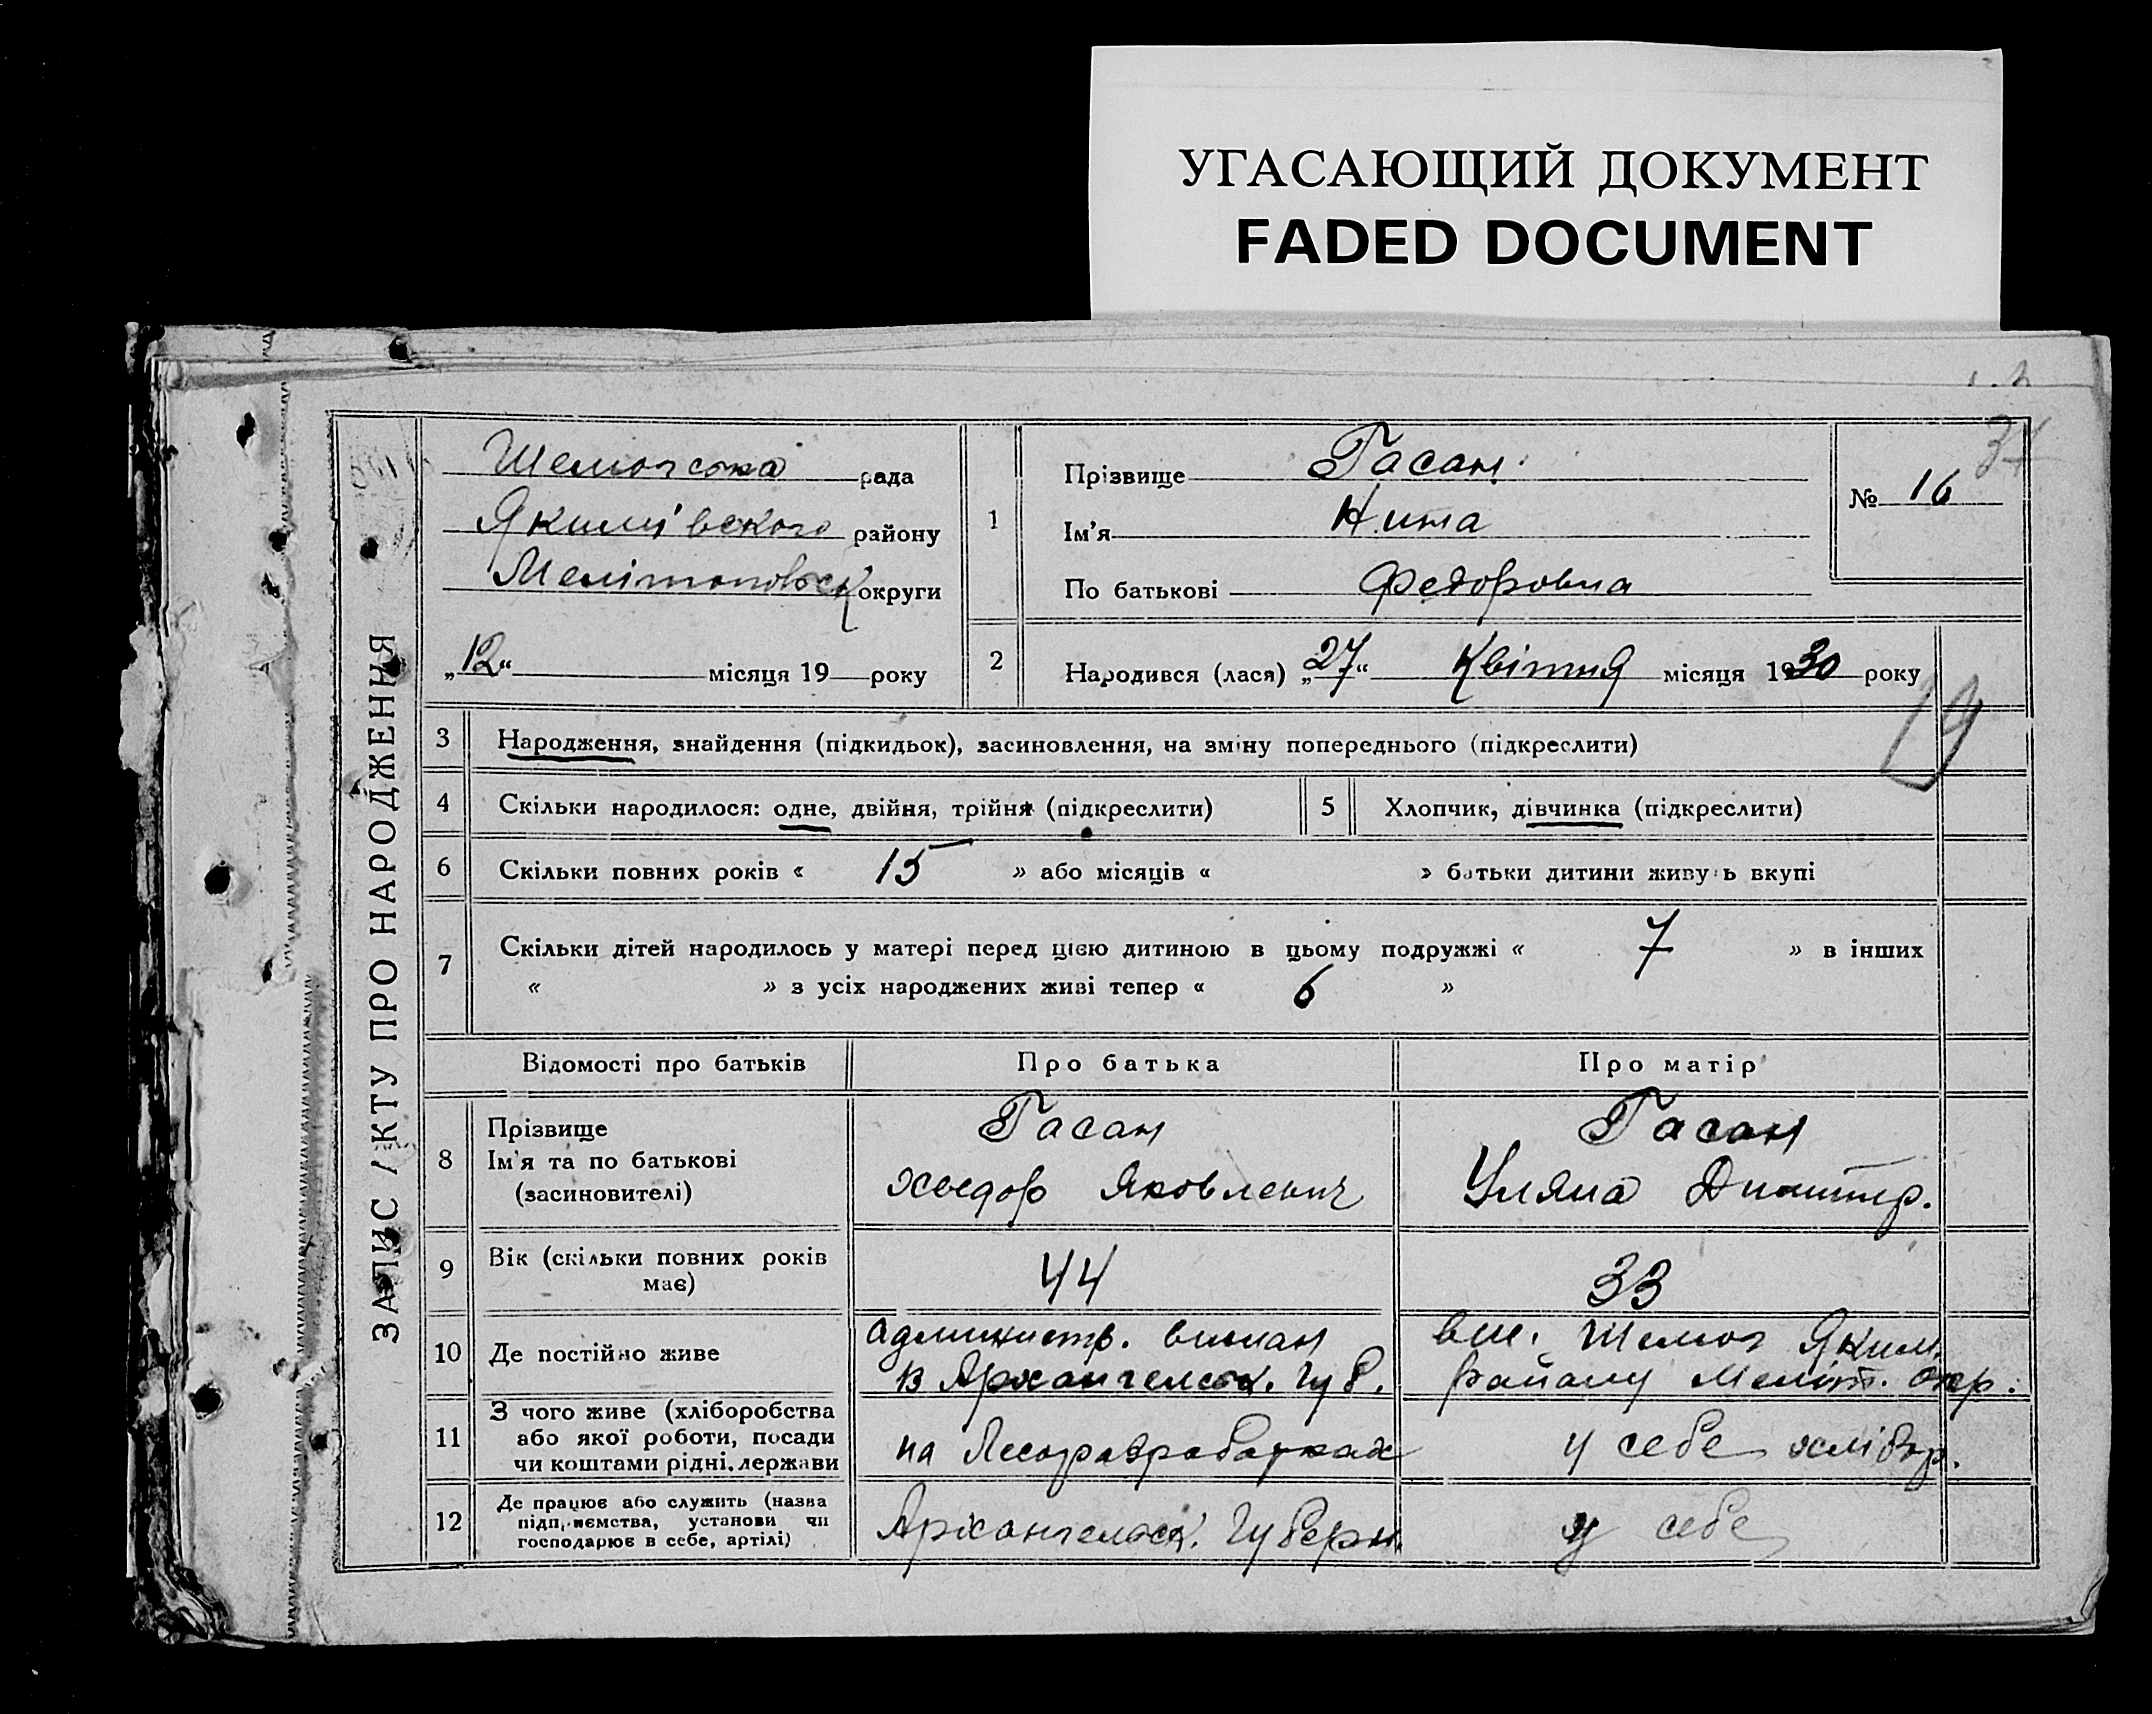 УГАСАЮЩИЙ ДОКУМЕНТ
FADED DOCUMENT
37
ЗАПИС АКТУ ПРО НАРОДЖЕННЯ
Шелюгська рада
Якимівського району
Мелітопольск округи
„12“ місяця 19 року
1
Прізвище Гасан
Ім'я Нина
По батькові Федоровна
№ 16
2
Народився (лася) „27“ Квітня місяця 1930 року
19
3 Народження, знайдення (підкидьок), засиновлення, на зміну попереднього (підкреслити)
4 Скільки народилося: одне, двійня, трійня (підкреслити)
5 Хлопчик, дівчинка (підкреслити)
6 Скільки повних років « 15 » або місяців « » батьки дитини живуть вкупі
7 Скільки дітей народилось у матері перед цією дитиною в цьому подружжі « 7 » в інших
« » з усіх народжених живі тепер « 6 »
Відомості про батьків Про батька Про матір
8 Прізвище
Ім'я та по батькові
(засиновителі)
Гасан
Хведор Яковлевич
Гасан
Уляна Дмитр.
9 Вік (скільки повних років
має)
44
33
10 Де постійно живе
администр. вислан
в Архангельск. Губ.
Яким.
району Меліт. окр.
11 З чого живе (хліборобства
або якої роботи, посади
чи коштами рідні, держави
на Лесоразработках
у себе хлібор.
12 Де працює або служить (назва
підприємства, установи чи
господарює в себе, артілі)
Архангельск. Губерн.
у себе